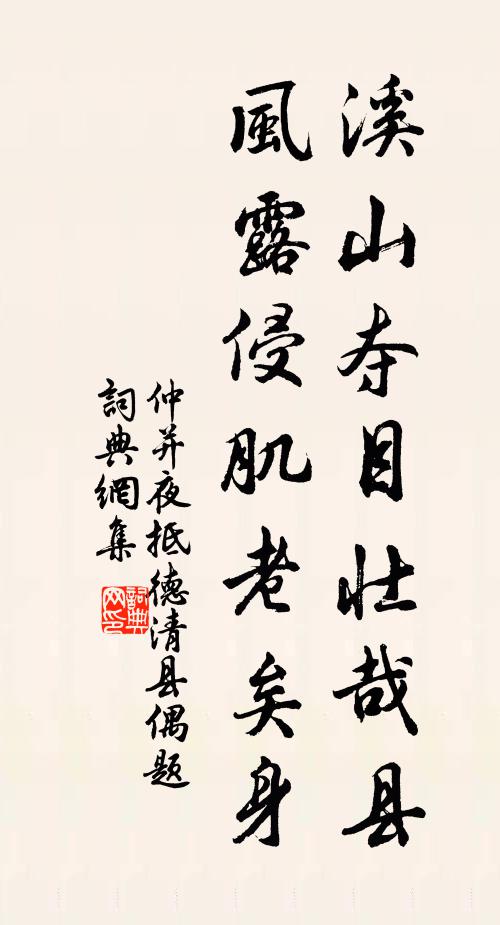 溪山夺目壮哉县
風露侵肌老矣身
仲并夜抵德清县偶题
詞典網集
詞典网印